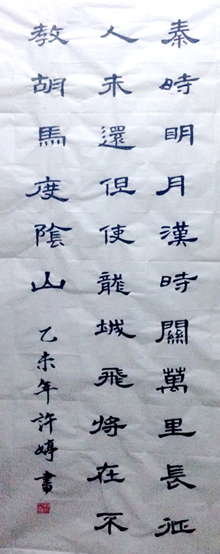 秦時明月漢時關萬里長征
人未還但使龍城飛将在不
教胡馬度陰山
乙未年許婷書